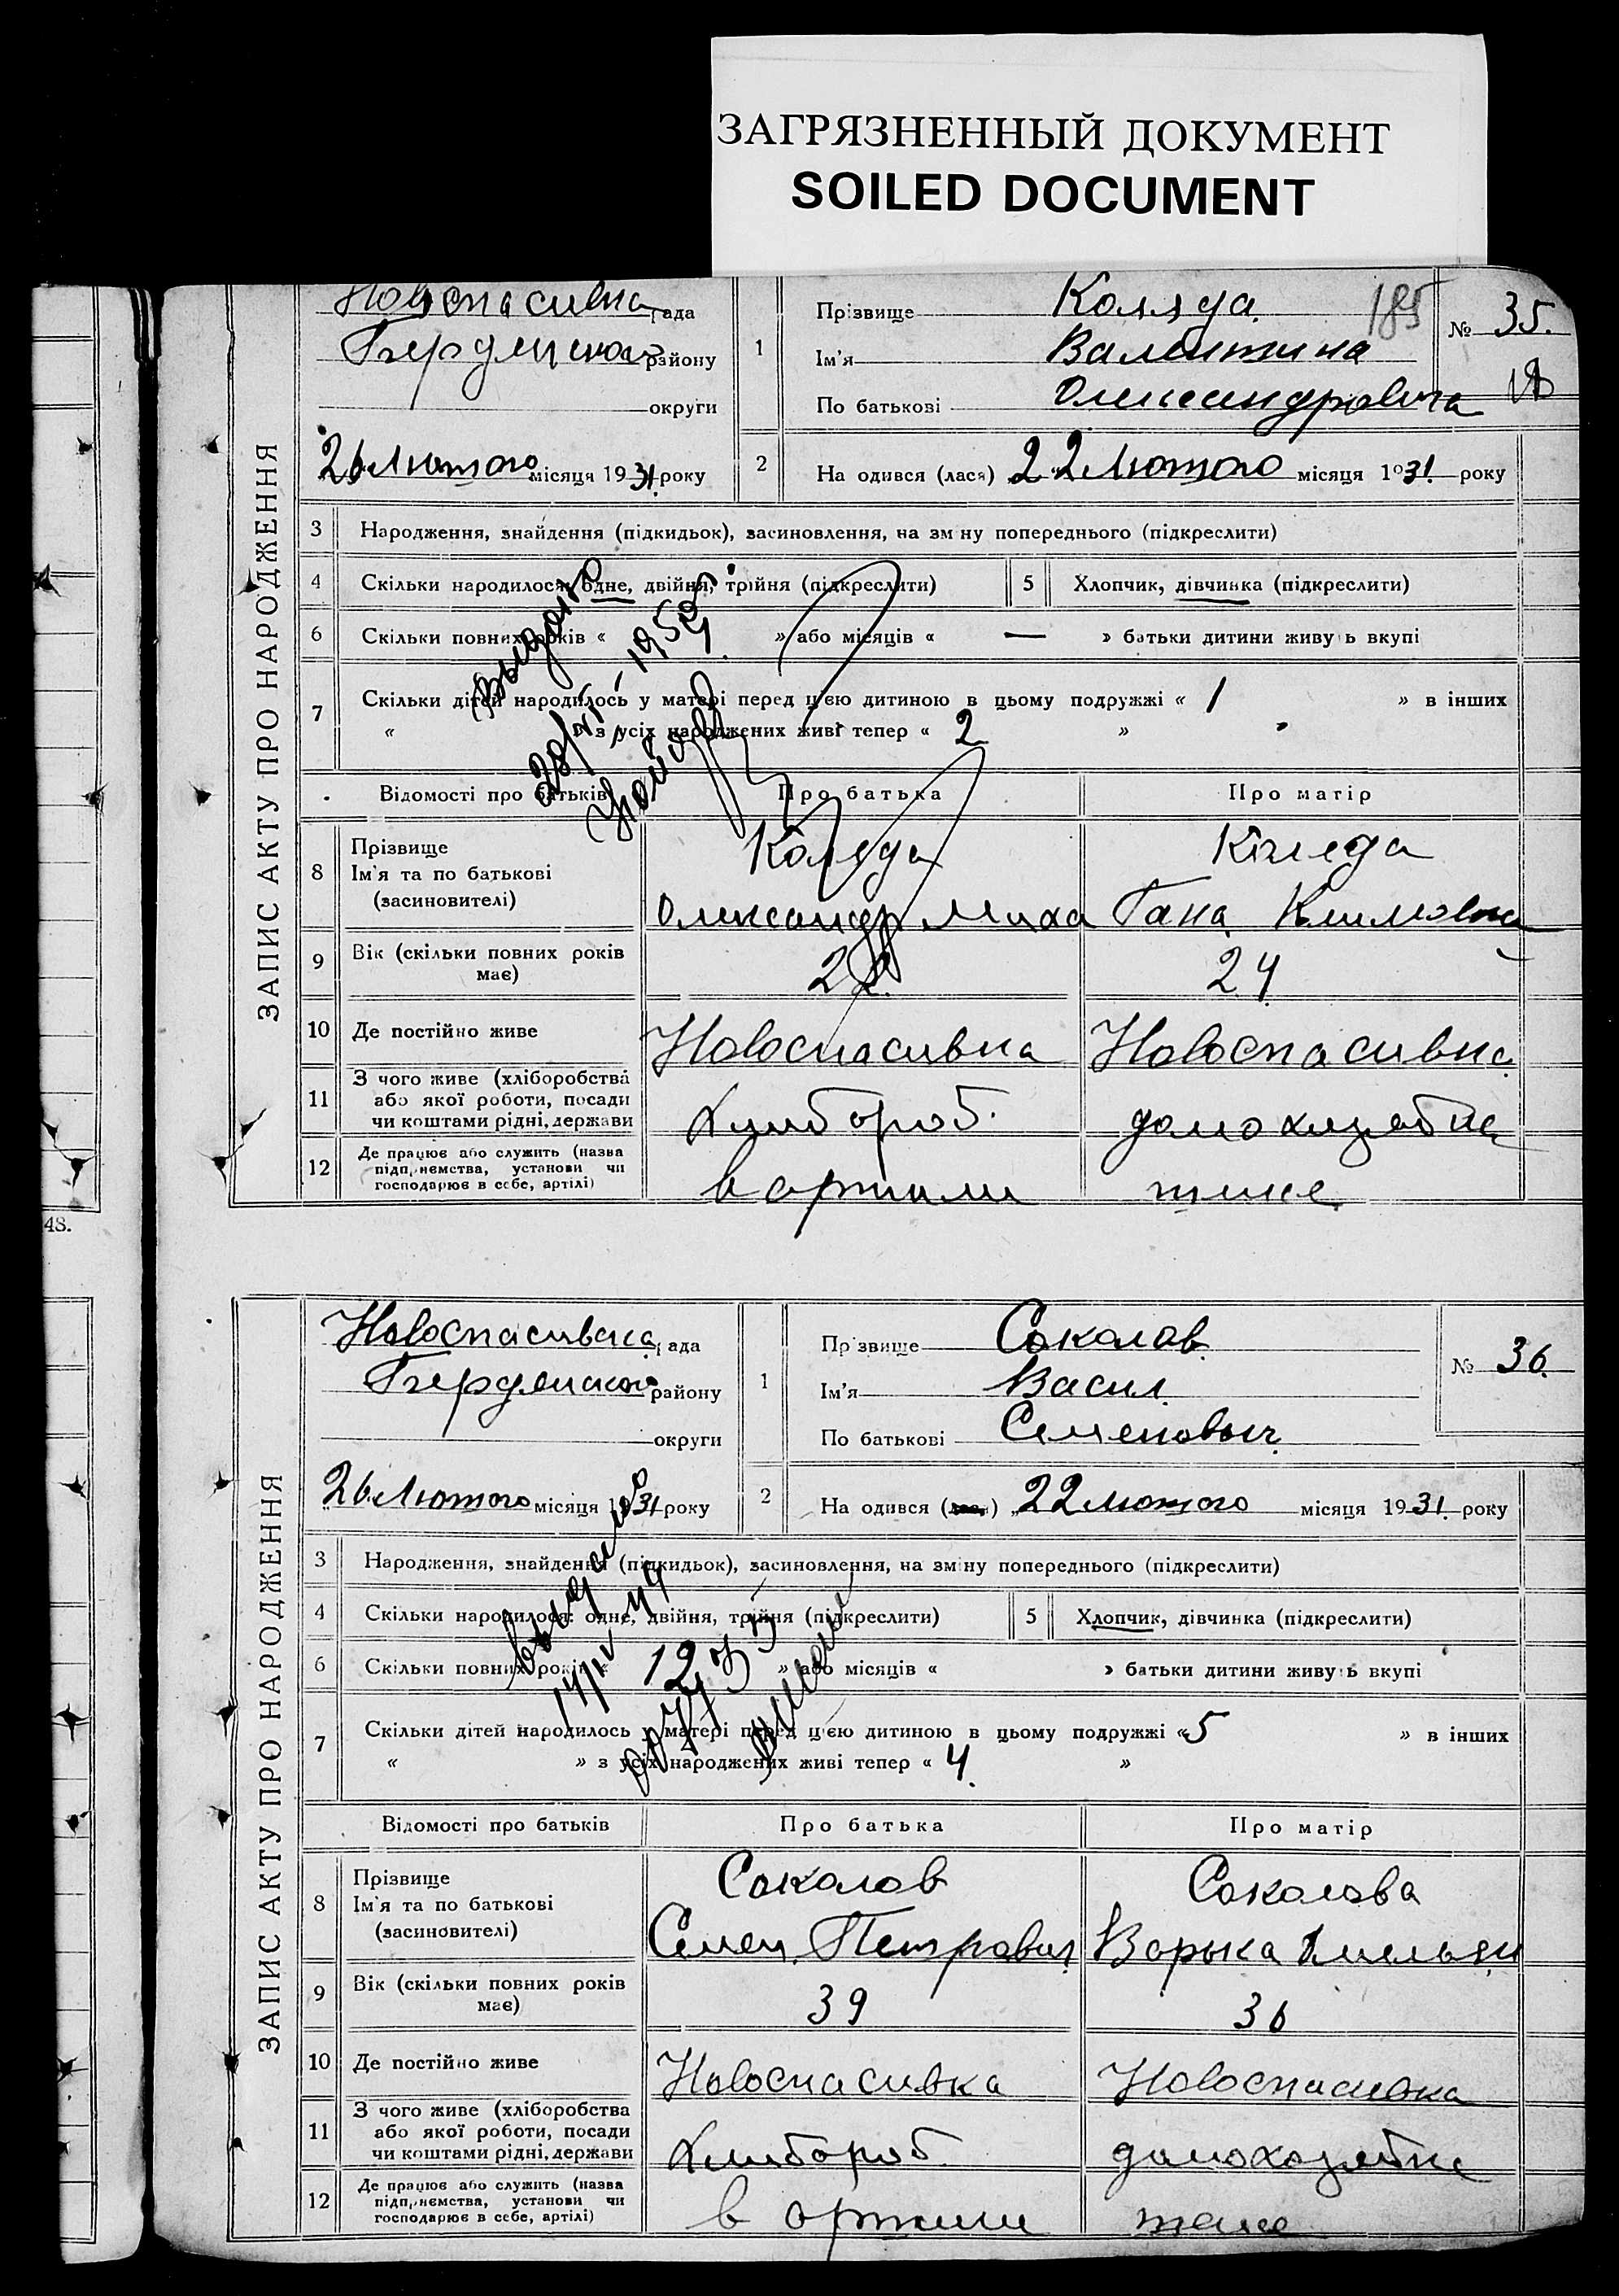 ЗАГРЯЗНЕННЫЙ ДОКУМЕНТ
SOILED DOCUMENT
185
№ 35.
Новоспасивна рада
Бердянского району
округи
26 Лютого місяця 1931 року
1
Прізвище Коляда
Ім'я Валентина
По батькові Олександровна
2
На одився (лася) 22 Лютого місяця 1931 року
ЗАПИС АКТУ ПРО НАРОДЖЕННЯ
3 Народження, знайдення (підкидьок), засиновлення, на зміну попереднього (підкреслити)
4 Скільки народилося: одне, двійня, трійня (підкреслити)
5 Хлопчик, дівчинка (підкреслити)
6 Скільки повних років « » або місяців « — » батьки дитини живуть вкупі
7 Скільки дітей народилось у матері перед цією дитиною в цьому подружжі « 1 » в інших
« » з усіх народжених живі тепер « 2 »
Выдано
1952
Відомості про батьків
Про батька
Про матір
8 Прізвище
Ім'я та по батькові
(засиновителі)
Коляда
Олександр Миха
Коляда
Гана Климовна
9 Вік (скільки повних років
має)
24
10 Де постійно живе
Новоспасивка
Новоспасивка
11 З чого живе (хліборобства
або якої роботи, посади
чи коштами рідні, держави
Хлибороб.
домохазяйка
12 Де працює або служить (назва
підприємства, установи чи
господарює в себе, артілі)
в артили
теже
48.
№ 36.
Новоспасивска рада
Бердянского району
округи
26 Лютого місяця 1931 року
1
Прізвище Соколов
Ім'я Васил
По батькові Семеновыч
2
На одився 22 Лютого місяця 1931 року
ЗАПИС АКТУ ПРО НАРОДЖЕННЯ
3 Народження, знайдення (підкидьок), засиновлення, на зміну попереднього (підкреслити)
4 Скільки народилося: одне, двійня, трійня (підкреслити)
5 Хлопчик, дівчинка (підкреслити)
6 Скільки повних років « 12 » або місяців « » батьки дитини живуть вкупі
7 Скільки дітей народилось у матері перед цією дитиною в цьому подружжі « 5 » в інших
« » з усіх народжених живі тепер « 4 »
Выдано
14/IV 49
Відомості про батьків
Про батька
Про матір
8 Прізвище
Ім'я та по батькові
(засиновителі)
Соколов
Семен Петровыч
Соколова
Варька Емельян
9 Вік (скільки повних років
має)
39
36
10 Де постійно живе
Новоспасивка
Новоспасивка
11 З чого живе (хліборобства
або якої роботи, посади
чи коштами рідні, держави
Хлибороб
домохазяйка
12 Де працює або служить (назва
підприємства, установи чи
господарює в себе, артілі)
в артили
теже